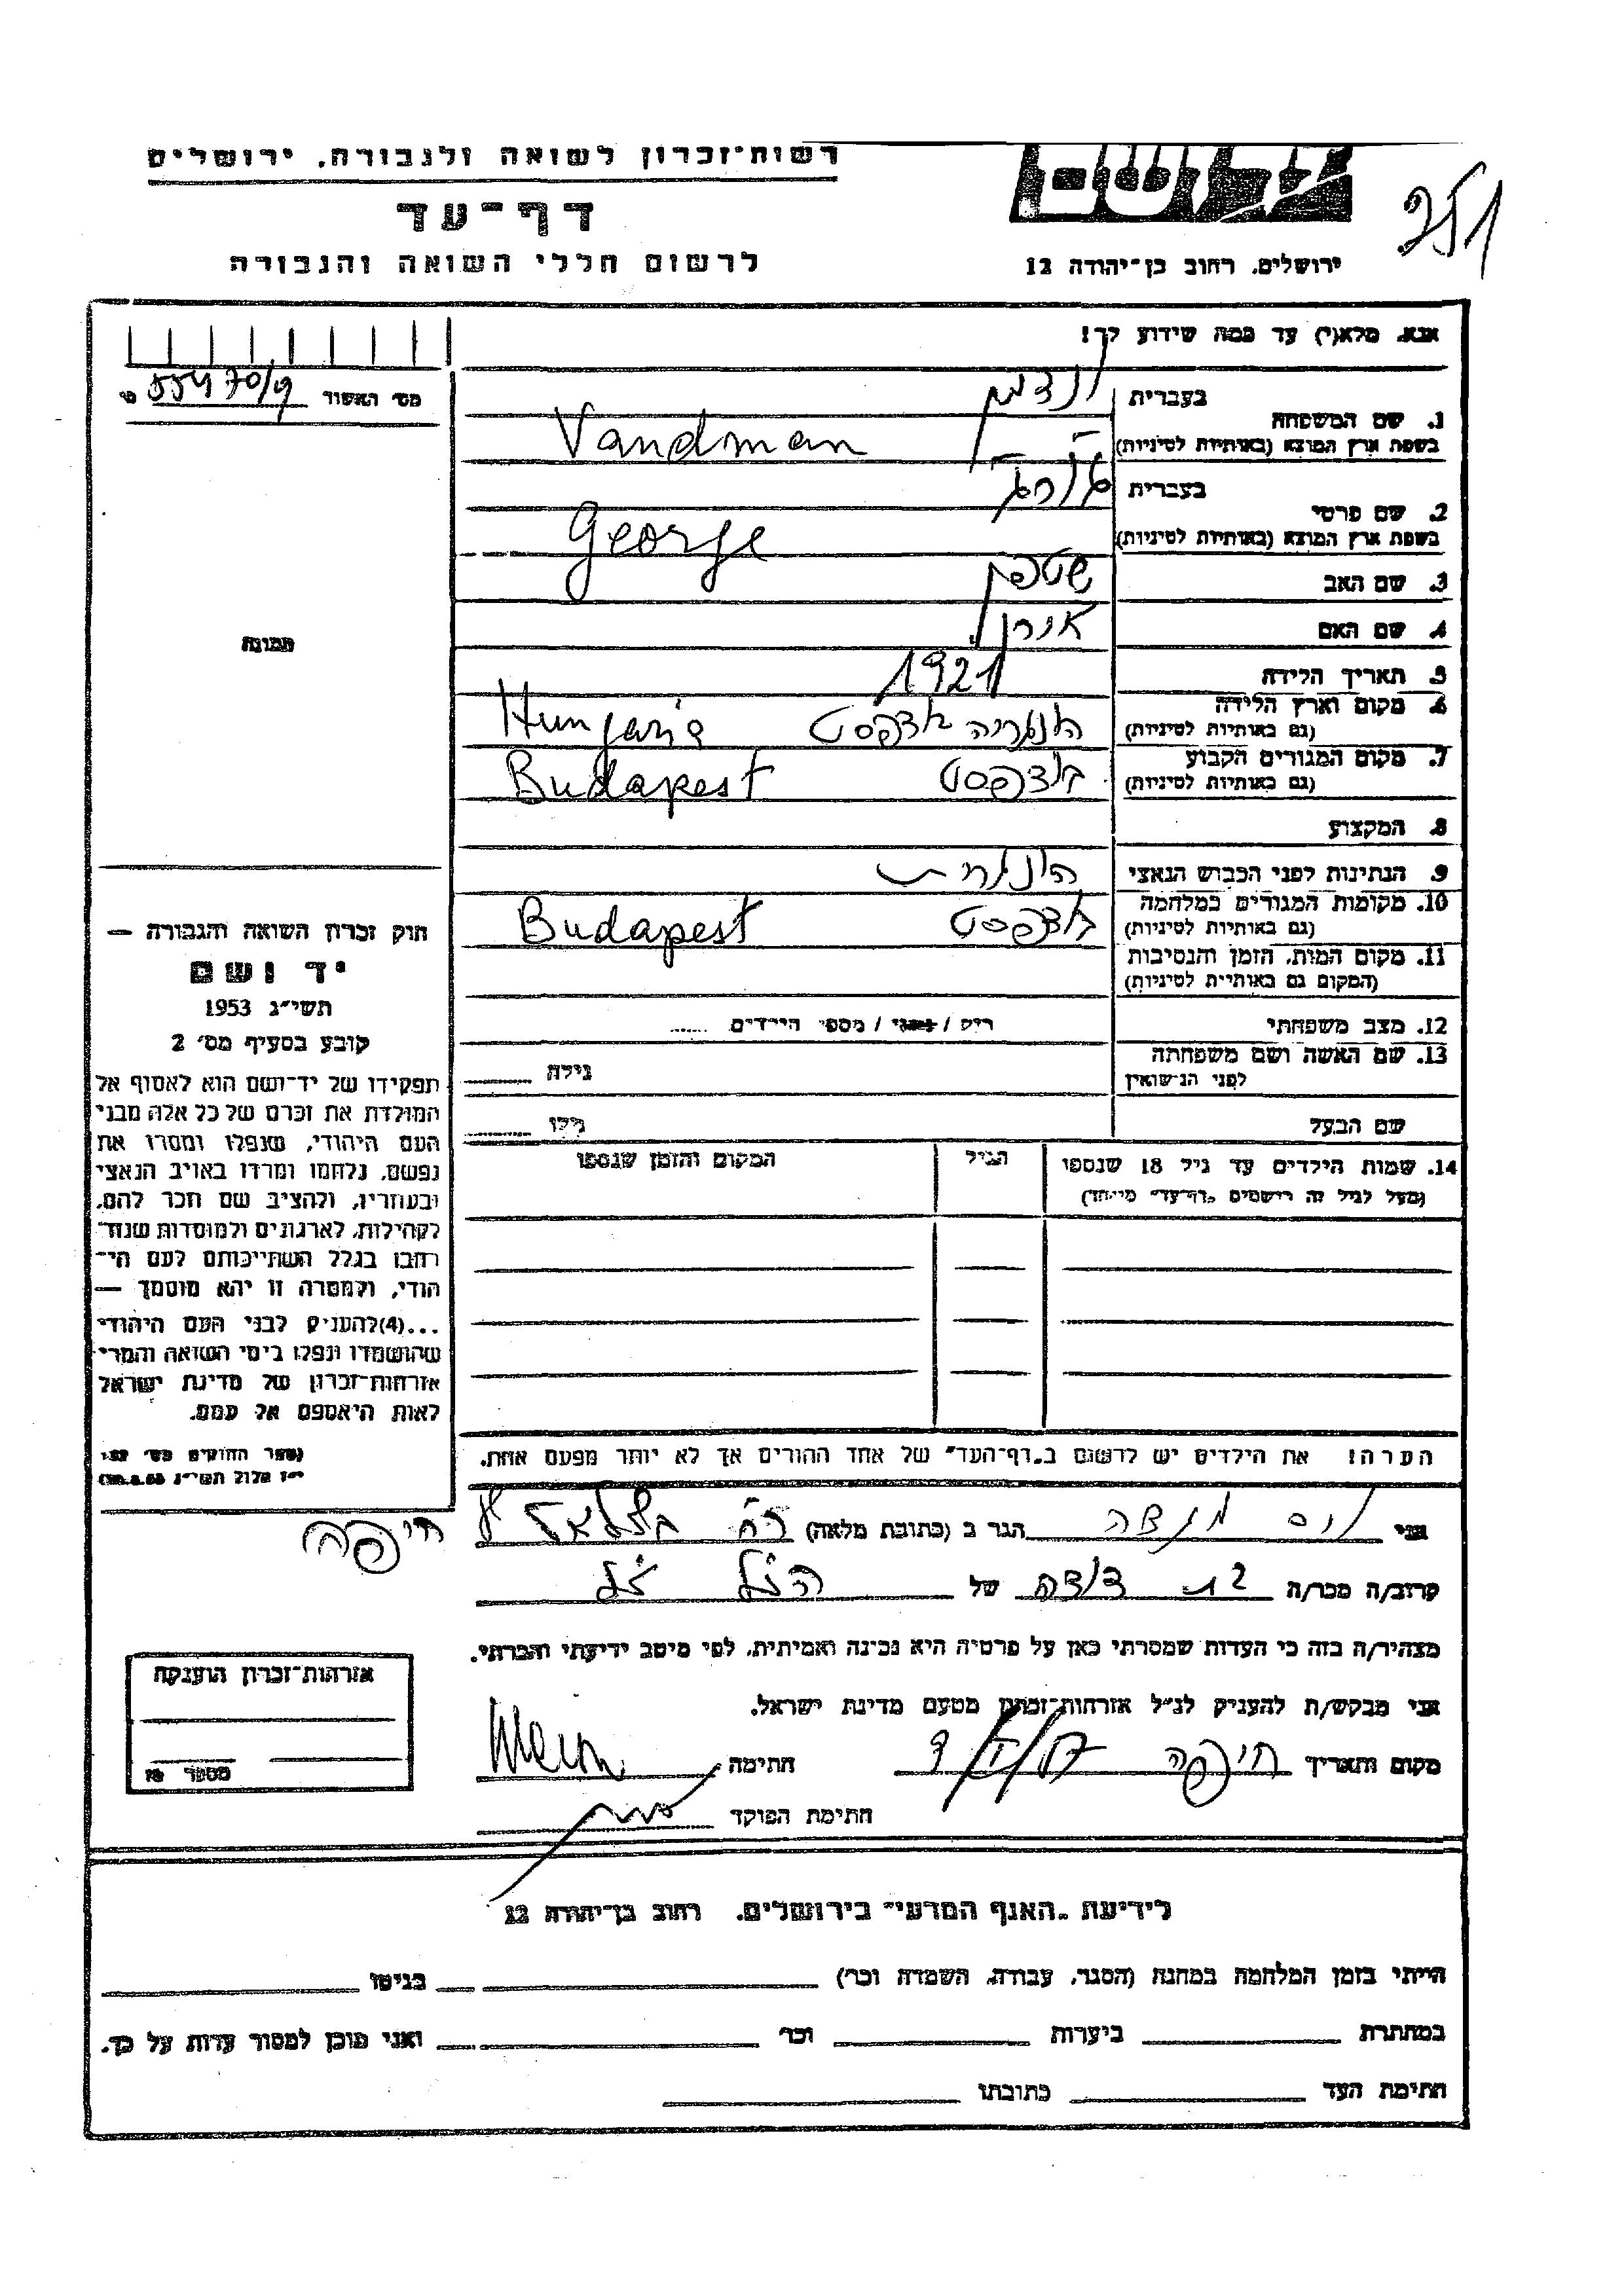 רשות-זכרון לשואה ולגבורה, ירושלים
דף-עד
לרשום חללי השואה והגבורה
ירושלים, רחוב בן-יהודה 12
אנא, מלא(י) עד כמה שידוע לך!
מס' האשור 55470/9
1. שם המשפחה
בעברית ונדמן
בשפת ארץ המוצא (באותיות לטיניות) Vandman
2. שם פרטי
בעברית
בשפת ארץ המוצא (באותיות לטיניות) George
3. שם האב שטפן
4. שם האם אירן
5. תאריך הלידה 1921
6. מקום וארץ הלידה
(גם באותיות לטיניות) הונגריה בודפסט Hungaria
7. מקום המגורים הקבוע
(גם באותיות לטיניות) בודפסט Budapest
8. המקצוע
9. הנתינות לפני הכבוש הנאצי הונגרית
10. מקומות המגורים במלחמה
(גם באותיות לטיניות) בודפסט Budapest
11. מקום המות, הזמן והנסיבות
(המקום גם באותיות לטיניות)
12. מצב משפחתי רוק / נשוי / מספר הילדים ......
13. שם האשה ושם משפחתה
לפני הנישואין גילה
שם הבעל גילו
14. שמות הילדים עד גיל 18 שנספו הגיל המקום והזמן שנספו
(מעל לגיל זה רושמים "דף-עד" מיוחד)
הערה! את הילדים יש לרשום ב"דף-העד" של אחד ההורים אך לא יותר מפעם אחת.
תמונה
חוק זכרון השואה והגבורה —
יד ושם
תשי"ג 1953
קובע בסעיף מס' 2
תפקידו של יד-ושם הוא לאסוף אל
המולדת את זכרם של כל אלה מבני
העם היהודי, שנפלו ומסרו את
נפשם, נלחמו ומרדו באויב הנאצי
ובעוזריו, ולהציב שם וזכר להם,
לקהילות, לארגונים ולמוסדות שנח-
רבו בגלל השתייכותם לעם הי-
הודי, ולמטרה זו יהא מוסמך —
...(4)להעניק לבני העם היהודי
שהושמדו ונפלו בימי השואה והמרי
אזרחות-זכרון של מדינת ישראל
לאות היאספם אל עמם.
אני מגדה הגר ב (כתובת מלאה) רח' בצלאל חיפה
קרוב/ה מכר/ה בת דודה של הנ"ל ז"ל
מצהיר/ה בזה כי העדות שמסרתי כאן על פרטיה היא נכונה ואמיתית, לפי מיטב ידיעתי והכרתי.
אני מבקש/ת להעניק לנ"ל אזרחות-זכרון מטעם מדינת ישראל.
מקום ותאריך חיפה חתימה
חתימת הפוקד
אזרחות-זכרון הוענקה
מספר
לידיעת "האגף המדעי" בירושלים, רחוב בן-יהודה 12
הייתי בזמן המלחמה במחנה (הסגר, עבודה, השמדה וכו') בגיטו
במחתרת ביערות וכו' ואני מוכן למסור עדות על כך.
חתימת העד כתובתו